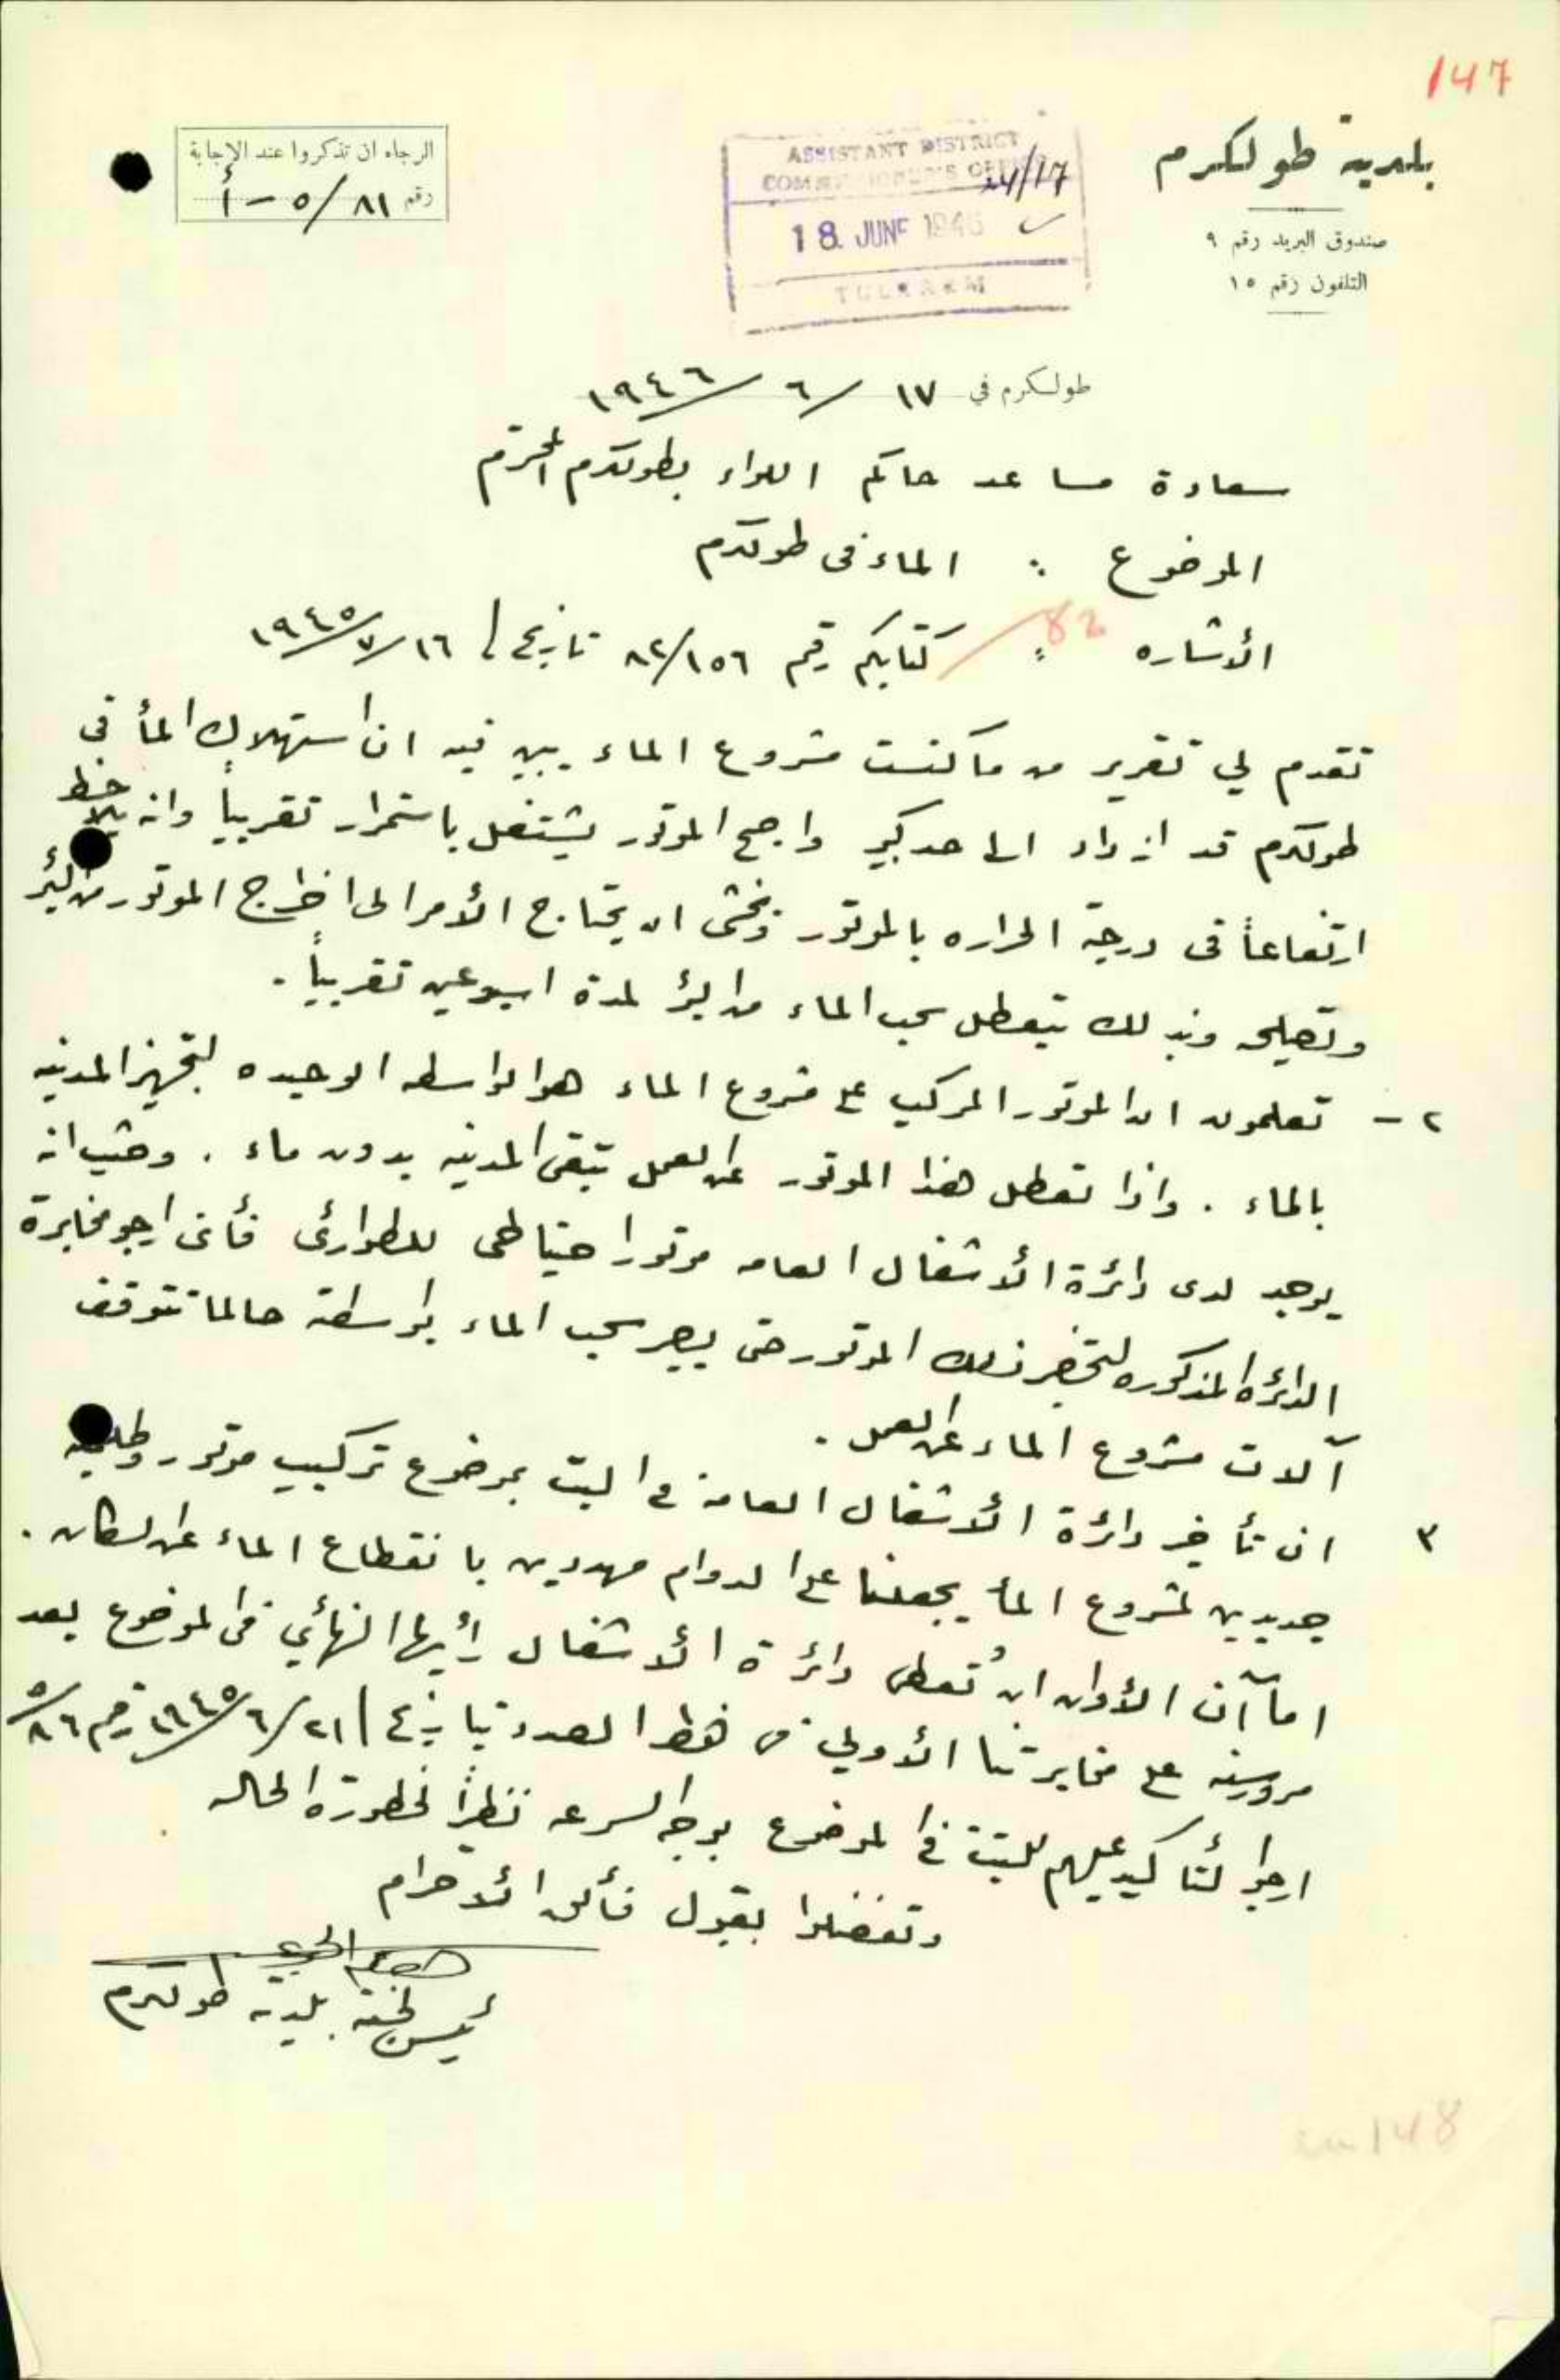 147
بلدية طولكرم
صندوق البريد رقم ٩
التلفون رقم ١٥
ASSISTANT DISTRICT
COMMISSIONER'S OFFICE
24/17
18 JUNE 1946
TULKARM
الرجاء ان تذكروا عند الإجابة
رقم ٨١/٥ - أ
طولكرم في ١٧/٦/١٩٤٦
سعادة مساعد حاكم اللواء بطولكرم المحترم
الموضوع : الماء في طولكرم
82
الأشاره : كتابكم رقم ٨٢/١٥٦ تاريخ ١٦/٧/١٩٤٥
تقدم لي تقرير من ماكنست مشروع الماء يبين فيه ان استهلاك المأ في
طولكرم قد ازداد الى حد كبير واصبح الموتور يشتغل باستمرار تقريباً وانه يلاحظ
ارتفاعاً في درجة الحراره بالموتور ونخشى ان يحتاج الأمر الى اخراج الموتور من البئر
وتصليحه وبذلك يتعطل سحب الماء من البئر لمدة اسبوعين تقريباً .
٢ - تعلمون ان الموتور المركب على مشروع الماء هو الواسطه الوحيده لتجهيز المدينه
بالماء . واذا تعطل هذا الموتور عن العمل تبقى المدينه بدون ماء . وحيث انه
يوجد لدى دائرة الأشغال العامه موتور احتياطي للطوارئ فأني ارجو مخابرة
الدائره المذكوره لتحضر ذلك الموتور حتى يصير سحب الماء بواسطته حالما تتوقف
آلات مشروع الماء عن العمل .
٣ ان تأخير دائرة الأشغال العامة في البت بموضوع تركيب موتور وطلمبه
جديدين لمشروع المأ يجعلنا على الدوام مهددين بانقطاع الماء عن السكان .
اما آن الأوان ان تُعطي دائرة الأشغال رأيها النهائي في الموضوع بعد
مرور سنه على مخابرتنا الأولى في هذا الصدد بتاريخ ٢١/٦/١٩٤٥ رقم ٨٦/٥
ارجو التأكيد عليهم للبت في الموضوع بوجه السرعه نظراً لخطورة الحاله
وتفضلوا بقبول فائق الأحترام
رئيس لجنة بلدية طولكرم
148